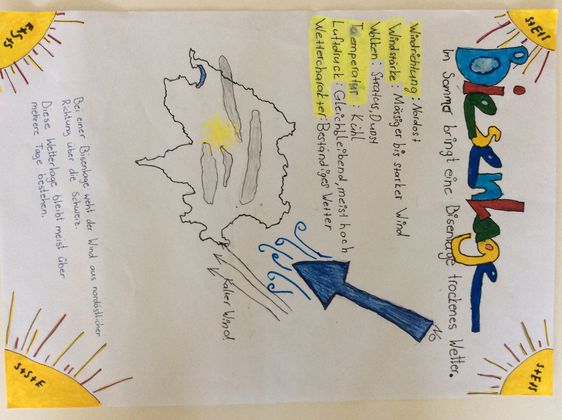 S+E+S
S+E+S
Biesenlage
Im Sommer bringt eine Bisenlage trockenes Wetter.
Windrichtung: Nordost
Windstärke: Mässiger bis starker Wind
Wolken: Stratus, Dunst
Temperatur: Kühl
Luftdruck: Gleichbleibend, meist hoch
Wettercharakter: Beständiges Wetter
NO
Kalter Wind
Bei einer Bisenlage weht der Wind aus nordöstlicher
Richtung über die Schweiz.
Diese Wetterlage bleibt meist über
mehrere Tage bestehen.
E+S+S
S+S+E